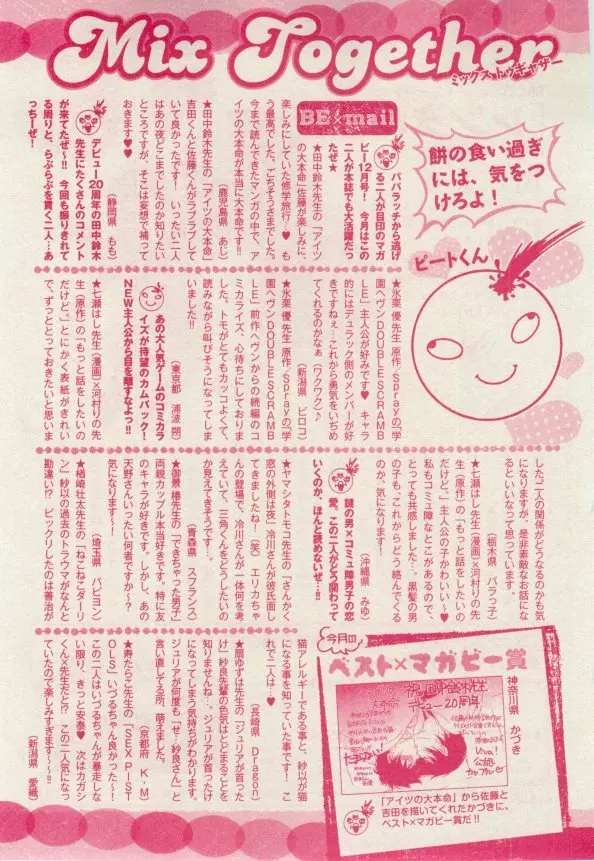 Mix Together
ミックストゥギャザー
餅の食い過ぎ
には、気をつ
けろよ！
ビートくん
BE×mail
パパラッチから逃げ
る二人が目印のマガ
ビー12月号！ 今月はこの
二人が本誌でも大活躍だっ
たぜ★
★田中鈴木先生の「アイツ
の大本命」佐藤が楽しみに、
楽しみにしていた修学旅行♥ も
う最高でした。ごちそうさまでした。
今まで読んできたマンガの中で、ア
イツの大本命が本当に大本命です！
（鹿児島県 あじ）
★田中鈴木先生の「アイツの大本命」
吉田くんと佐藤くんがラブラブして
いて良かったです！ いったい二人
はあの夜どこまでしたのか知りたい
ところですが、そこは妄想で補って
おきます♥♥
（静岡県 もも）
デビュー20周年の田中鈴木
先生にたくさんのコメント
が来てたぜ〜!! 今回も振りまされて
る周りと、らぶらぶを貫く二人…あ
っちーぜ！
★氷栗 優先生 原作／Sprayの「学
園ヘヴンDOUBLE SCRAMB
LE」主人公が好みです♥ キャラ
的にはデュラック側のメンバーが好
きですねぇ…これから勇気をいぢめ
てくれるのかなぁ（ワクワク）♪
（新潟県 ピロコ）
★氷栗 優先生 原作／Sprayの「学
園ヘヴンDOUBLE SCRAMB
LE」前作ヘヴンからの続編のコ
ミカライズ、心待ちにしておりま
した。トモがとてもカッコよくて、
読みながら叫びそうになってしま
いました!!
（東京都 浦波 朔）
あの大人気ゲームのコミカラ
イズが待望のカムバック！
NEW主人公から目を離すなよっ!!
★七瀬はし先生（漫画）×河村りの先
生（原作）の「もっと話をしたいの
だけど。」とにかく表紙がきれい
で、ずっととっておきたいと思いま
した。二人の関係がどうなるのかも気
になりますが、是非素敵なお話にな
るといいなって思っています。
（栃木県 バラっ子）
★七瀬はし先生（漫画）×河村りの先
生（原作）の「もっと話をしたいの
だけど。」主人公の子かわいい〜♥
私もコミュ障なとこがあるので、
とっても共感しました…黒髪の男
の子も、これからどう絡んでくる
のか、気になります！
（沖縄県 みゆ）
謎の男×コミュ障男子の恋
愛、この二人がどう関わって
いくのか、ほんと読めないぜ…!!
★ヤマシタトモコ先生の「さんかく
窓の外側は夜」冷川さんが彼氏面し
てきましたね！（笑） エリカちゃ
んの登場で、冷川さんが一体何を考
えていて、三角くんをどうしたいの
か見えてきそうです…
（青森県 スフランス）
★御景 椿先生の「できちゃった男子」
両親カップル本当好きです。特に友
のキャラが好きです。しかし、あの
天野さんいったい何者ですか〜？
気になります〜！
（埼玉県 パピヨン）
★楢崎壮太先生の「ねこねこダーリ
ン」紗以の過去のトラウマがなんと
勘違い!? ビックリしたのは善治が
猫アレルギーである事と、紗以が猫
になる事を知っていた事です！ こ
れで二人は…♥
（長崎県 Dragon）
★扇ゆずは先生の「ジュリアが首った
け」紗良先輩の色気はとどまることを
知りませんね…。ジュリアが首ったけ
になってしまう気持ちがわかります。
ジュリアが何度も「せ…紗良さん」と
言い直してる所、萌えました。
（京都府 K・M）
★寿たらこ先生の「SEX PIST
OLS」いづるちゃん良かった〜！
この二人はいづるちゃんが暴走しな
い限り、きっと安泰♥ 次はカガシ
くん×先生だと!? この二人気になっ
ていたので楽しみすぎます〜!!
（新潟県 愛織）
今月の
ベスト×マガビー賞
神奈川県 かづき
祝田中鈴木先生
デビュー20周年
Viva!
公認
カップル♥
「アイツの大本命」から佐藤と
吉田を描いてくれたかづきに、
ベスト×マガビー賞だ!!